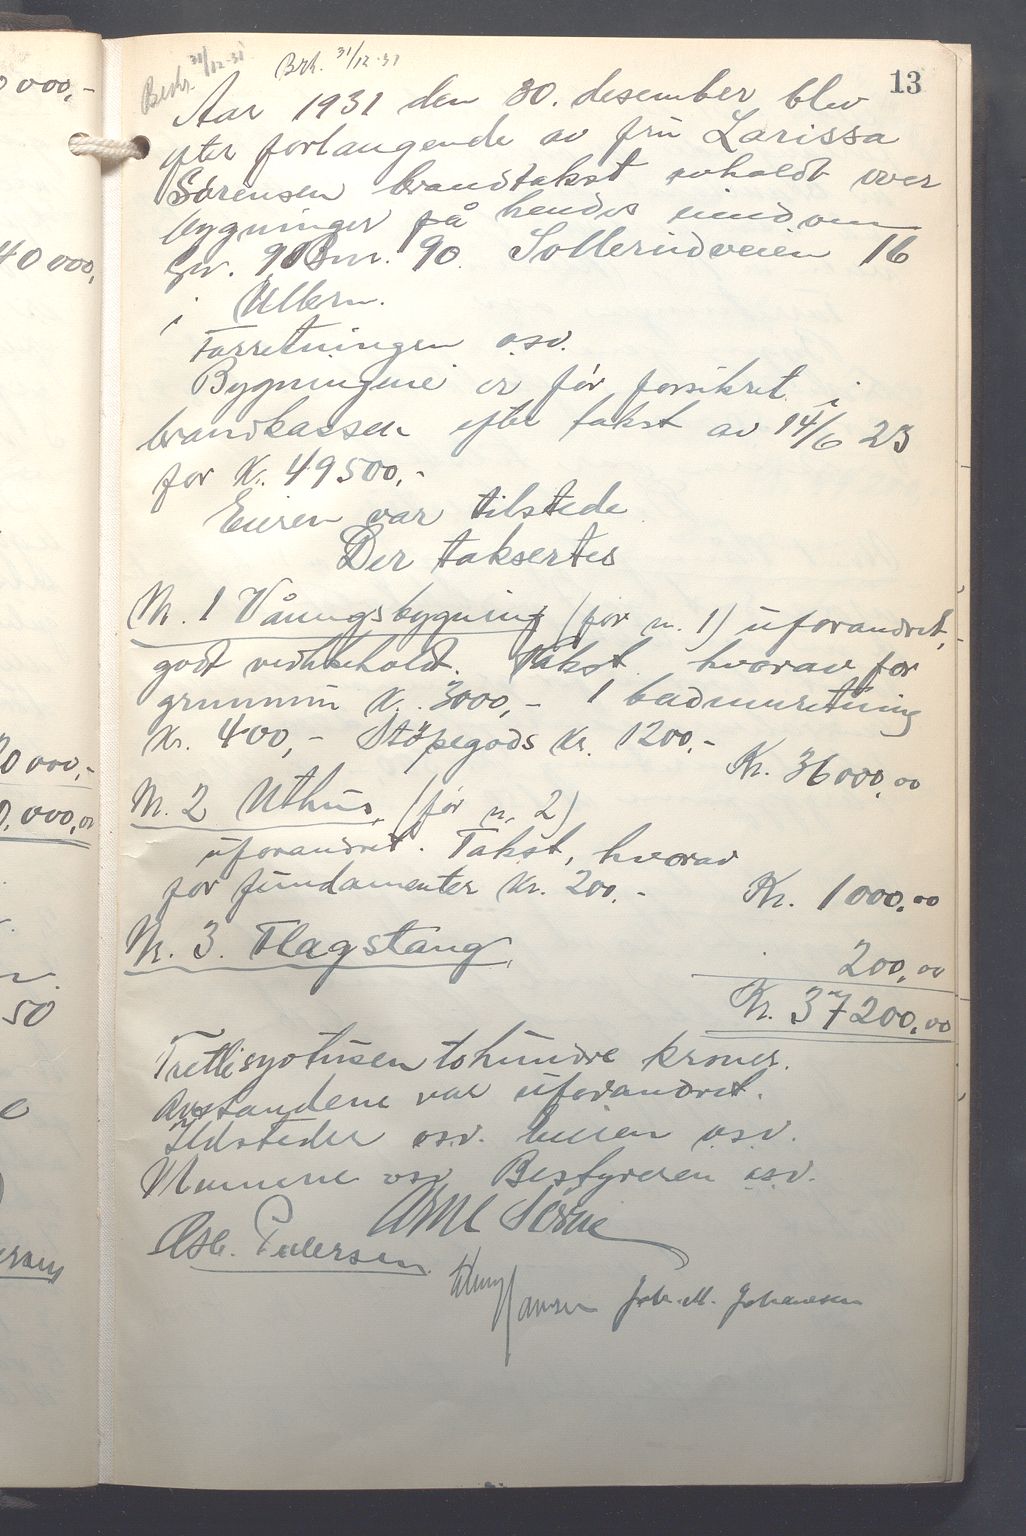 13
Beskr. 31/12-31 Brk. 31/12-31
Aar 1931 den 30. desember blev
efter forlangende av fru Larissa
Sörensen brandtakst avholdt over
bygninger på hendes eiendom
Gr. 9 Bnr. 90. Sollerudveien 16
i Ullern.
Forretningen osv.
Bygningene er før forsikret i
brandkassen efter takst av 14/6 23
for Kr. 49500,-
Eieren var tilstede
Der taksertes
Nr. 1 Våningsbygning (før nr. 1) uforandret,
godt vedlikeholdt. Takst hvorav for
grunnmur Kr. 3000,- 1 badinnretning
Kr. 400,- Støpegods Kr. 1200,-
Kr. 36000,00
Nr. 2 Uthus, (før nr. 2)
uforandret. Takst, hvorav
for fundamenter Kr. 200,-
Kr. 1000,00
Nr. 3. Flagstang,
200,00
Kr. 37200,00
Trettisyvtusen tohundre kroner.
Avstandene var uforandret.
Ildsteder osv. Eieren osv.
Mennene osv. Bestyreren osv.
Arne
Osc. Pedersen
Hansen Joh. M. Johansen
0000,-
40000,
0000,-
0.000,00
50